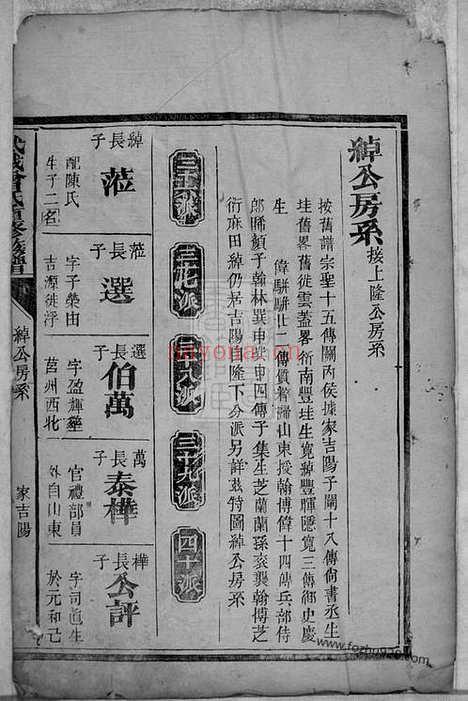 綽公房系接上隆公房系
按舊譜宗聖十五傳關內侯據家吉陽子闡十八傳尙書丞生
珪舊畧舊徙雲蓋畧衍南豐珪生寬綽豐暉隱寬三傳御史慶
生
偉駢
山東授翰博偉十四傳兵部侍
郎晞顏子翰林巽申巽申四傳子集生芝蘭蘭孫袞襲翰博芝
衍麻田綽仍居吉陽自隆下分派另詳茲特圖綽公房系
三十六派
三十七派
三十八派
三十九派
四十派
綽長子
蒞
配陳氏
生子二名
蒞長子
選
字子榮由
吉源徙浮
選長子
伯萬
字盈輝葬
莒州西北
萬長子
泰樺
官禮部員
外自山東
樺長子
公評
字司直生
於元和己
武城曾氏重修族譜
綽公房系
家吉陽
nayona.cn
www.fozhu920.com